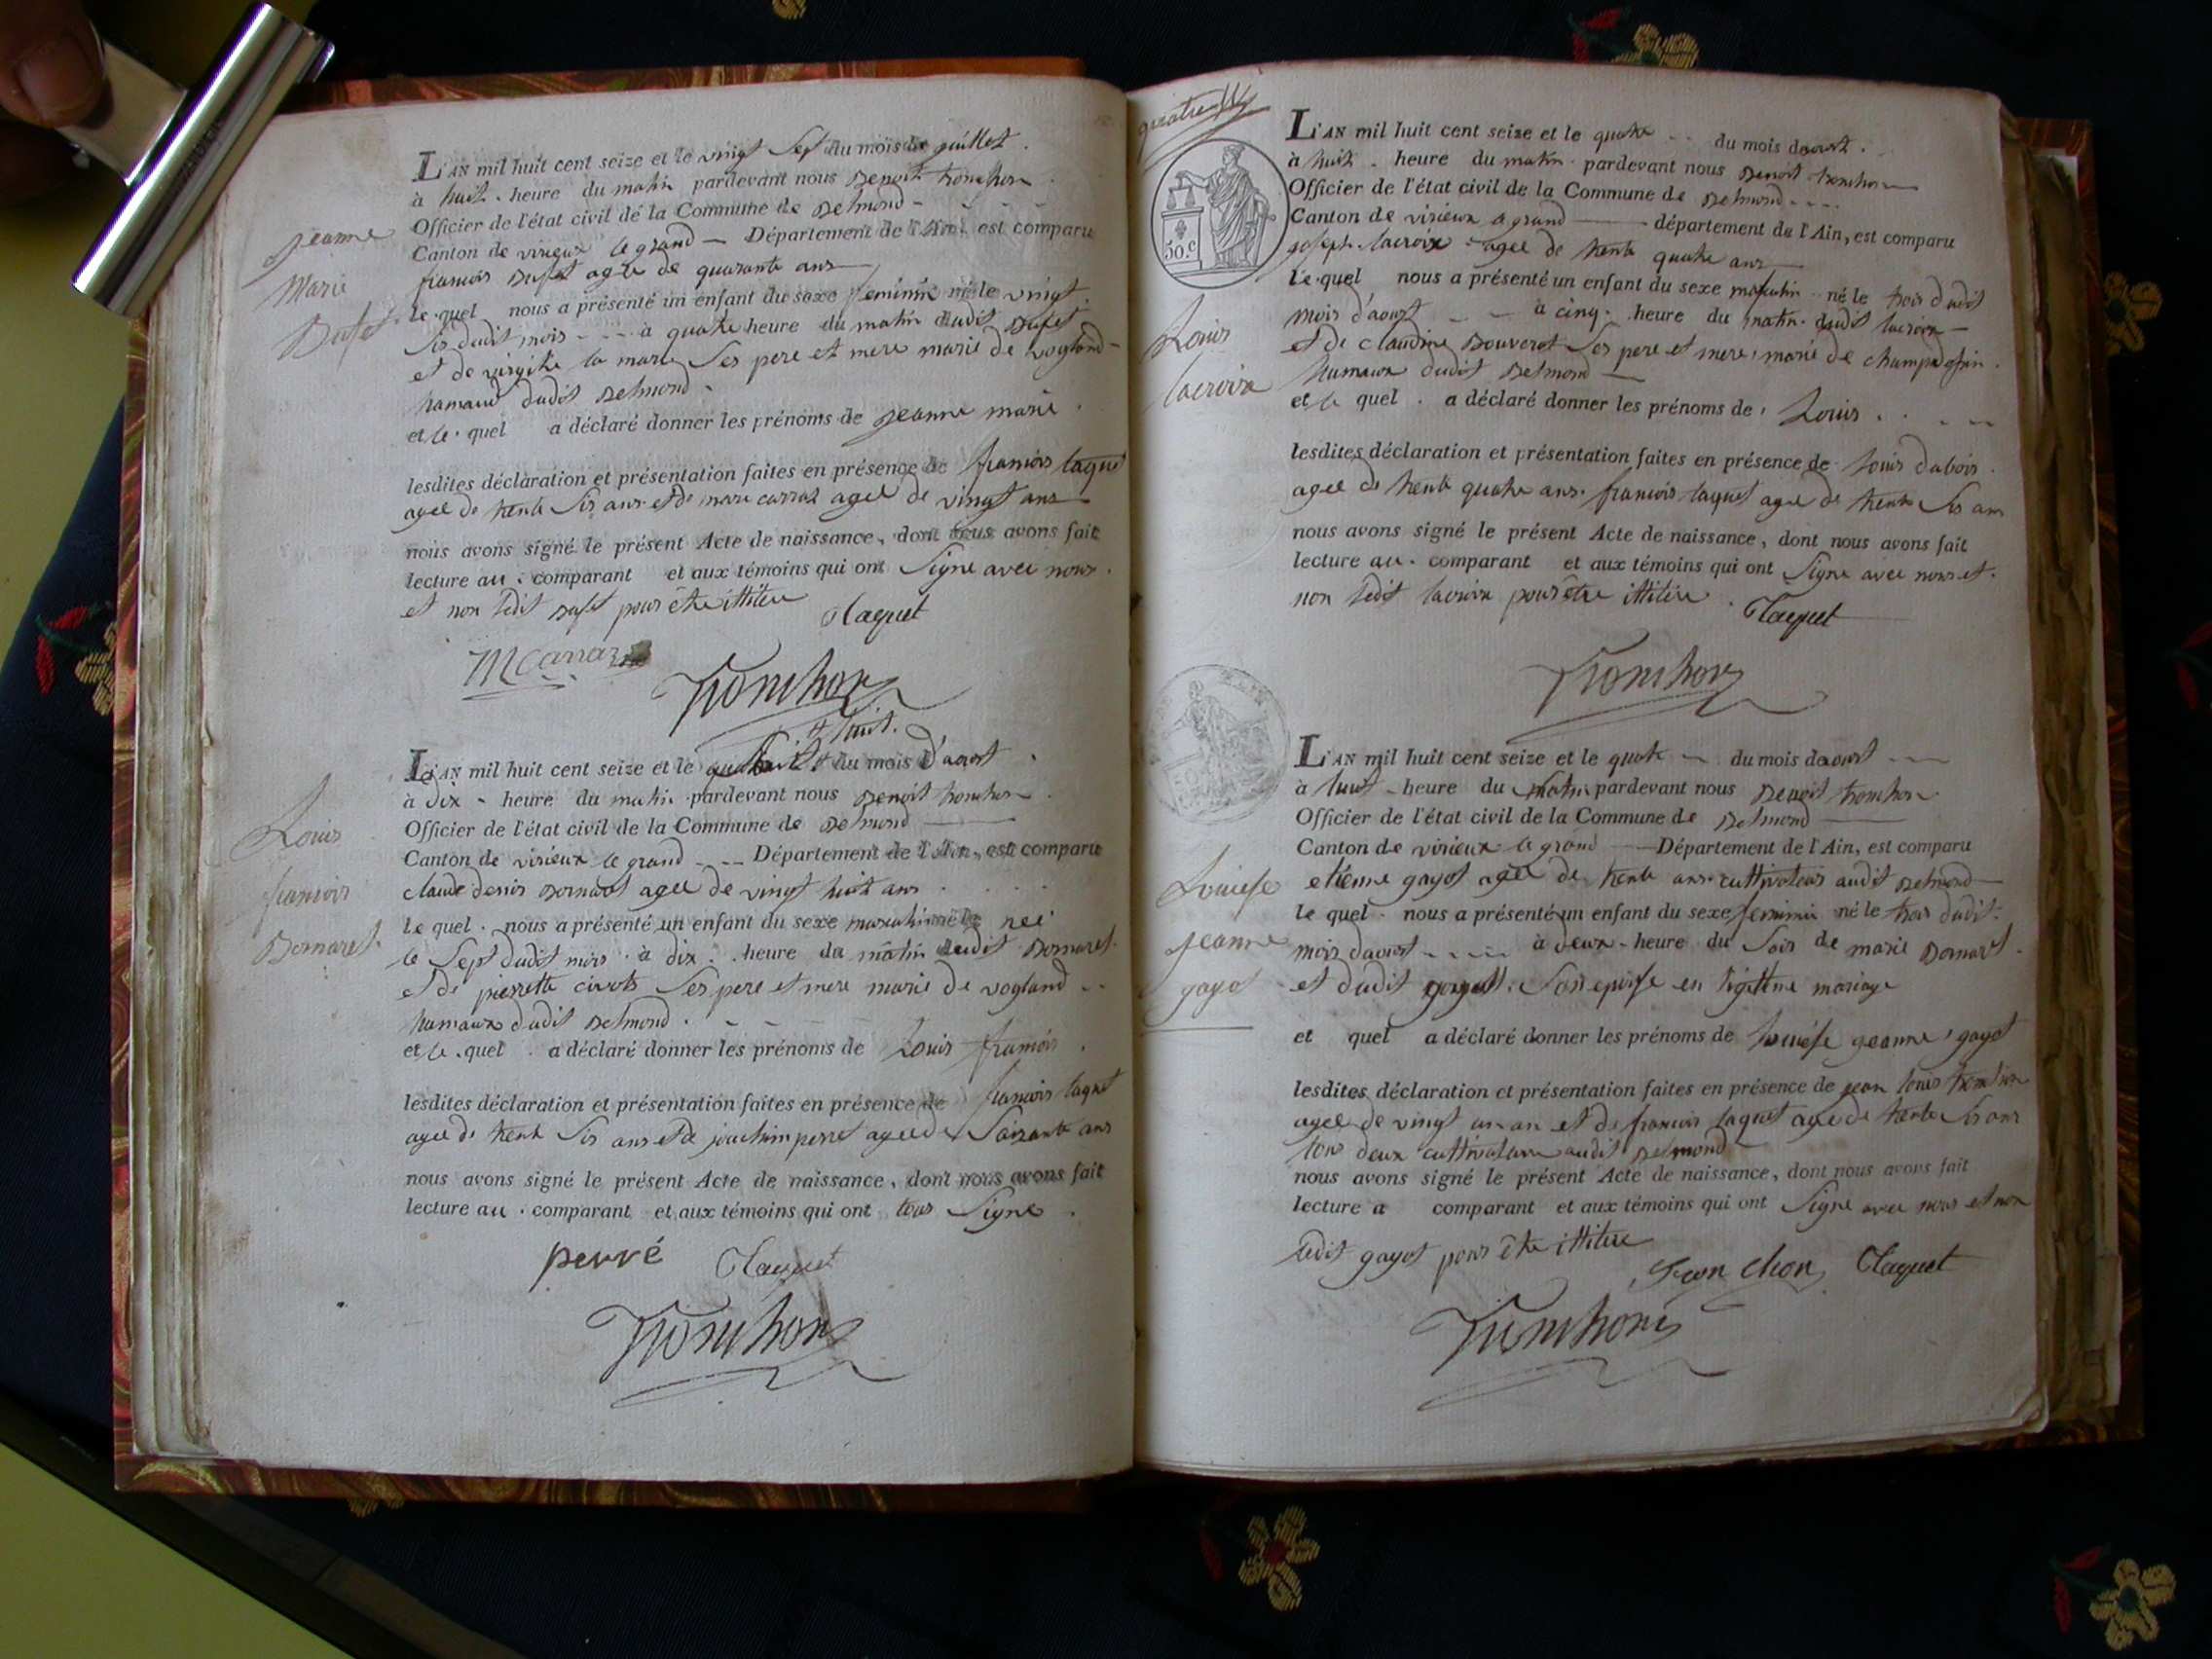 Jeanne
Marie
Dufet
L'AN mil huit cent seize et le vingt Sept du mois de juillet.
à huit. heure du matin pardevant nous Benoit tronchon
Officier de l'état civil de la Commune de Belmond -
Canton de virieux le grand - Département de l'Ain, est comparu
francois Dufet agée de quarante ans
le.quel nous a présenté un enfant du sexe feminin né le vingt
Sis dudit mois - - - à quatre heure du matin dudit Dufet
et de virgitte la marie Ses pere et mere marié de vogland -
hamaux dudit Belmond.
et le.quel a déclaré donner les prénoms de jeanne marie.
lesdites déclaration et présentation faites en présence de francois taquet
agee de trente Sis ans et de marc carraz agee de vingt ans
nous avons signé le présent Acte de naissance, dont nous avons fait
lecture au. comparant et aux témoins qui ont Signe avec nous.
et non ledit Dufet pour être illitere
Claquet
M Carraz
Tronchon
Louis
francois
Bornaret.
# huit.
L'AN mil huit cent seize et le # du mois d'aoust
à dix - heure du matin pardevant nous Benoit tronchon
Officier de l'état civil de la Commune de Belmond
Canton de virieux le grand - - - Département de l'Ain, est comparu
claude denis Bornarot agee de vingt huit ans
le quel. nous a présenté un enfant du sexe masculin né le nei
le Sept dudit mois. à dix. heure du matin dudit Bornaret.
et de pierrette civots Ses pere et mere marié de vogland - -
hamaux dudit Belmond.
et le.quel. a déclaré donner les prénoms de Louis francois.
lesdites déclaration et présentation faites en présence de francois taquet
agee de trente Sis ans et de joachim perret agee de Soixante ans
nous avons signé le présent Acte de naissance, dont nous avons fait
lecture au. comparant et aux témoins qui ont tous Signe.
perré Claquet
Tronchon
quatre
50.c
Louis
lacroix
L'AN mil huit cent seize et le quatre - - du mois daoust.
à huit. heure du matin. pardevant nous Benoit tronchon
Officier de l'état civil de la Commune de Belmond - - - -
Canton de virieux le grand - département de l'Ain, est comparu
joseph lacroix agee de trente quatre ans
le.quel nous a présenté un enfant du sexe masculin né le trois dudit
mois d'aoust - - à cinq. heure du matin. dudit lacroix -
et de claudine Bouverot Ses pere et mere, marié de
hamaux dudit Belmond -
et le quel. a déclaré donner les prénoms de, Louis.
lesdites déclaration et présentation faites en présence de louis dubois.
agee de trente quatre ans. francois taquet agee de trente Sis ans
nous avons signé le présent Acte de naissance, dont nous avons fait
lecture au. comparant et aux témoins qui ont Signe avec nous et.
non ledit lacroix pour être illitere.
Claquet
Tronchon
Louiese
jeanne
gayot
L'AN mil huit cent seize et le quatre - du mois daoust - - -
à huit - heure du matin pardevant nous Benoit tronchon.
Officier de l'état civil de la Commune de Belmond
Canton de virieux le grand - Département de l'Ain, est comparu
etienne gayot agee de trente ans. cultivateur audit Belmond -
le quel. nous a présenté un enfant du sexe feminin né le trois dudit.
mois daoust - - - - à deux - heure du Soir de marie Bornaret.
et dudit gayot. Son epouse en légittime mariage
et quel a déclaré donner les prénoms de louiese jeanne, gayot
lesdites déclaration et présentation faites en présence de jean louis tronchon
agee de vingt un an et de francois taquet agee de trente Sis ans
tous deux cultivateur audit Belmond
nous avons signé le présent Acte de naissance, dont nous avons fait
lecture a comparant et aux témoins qui ont Signe avec nous et non
ledit gayot pour être illitere
Tronchon Claquet
Tronchon